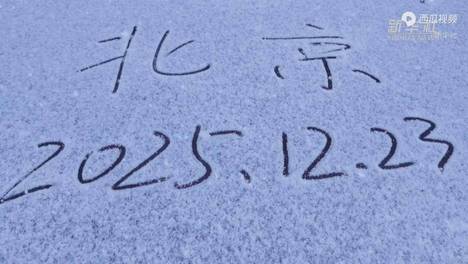 西瓜视频
新华社
北京
2025.12.23